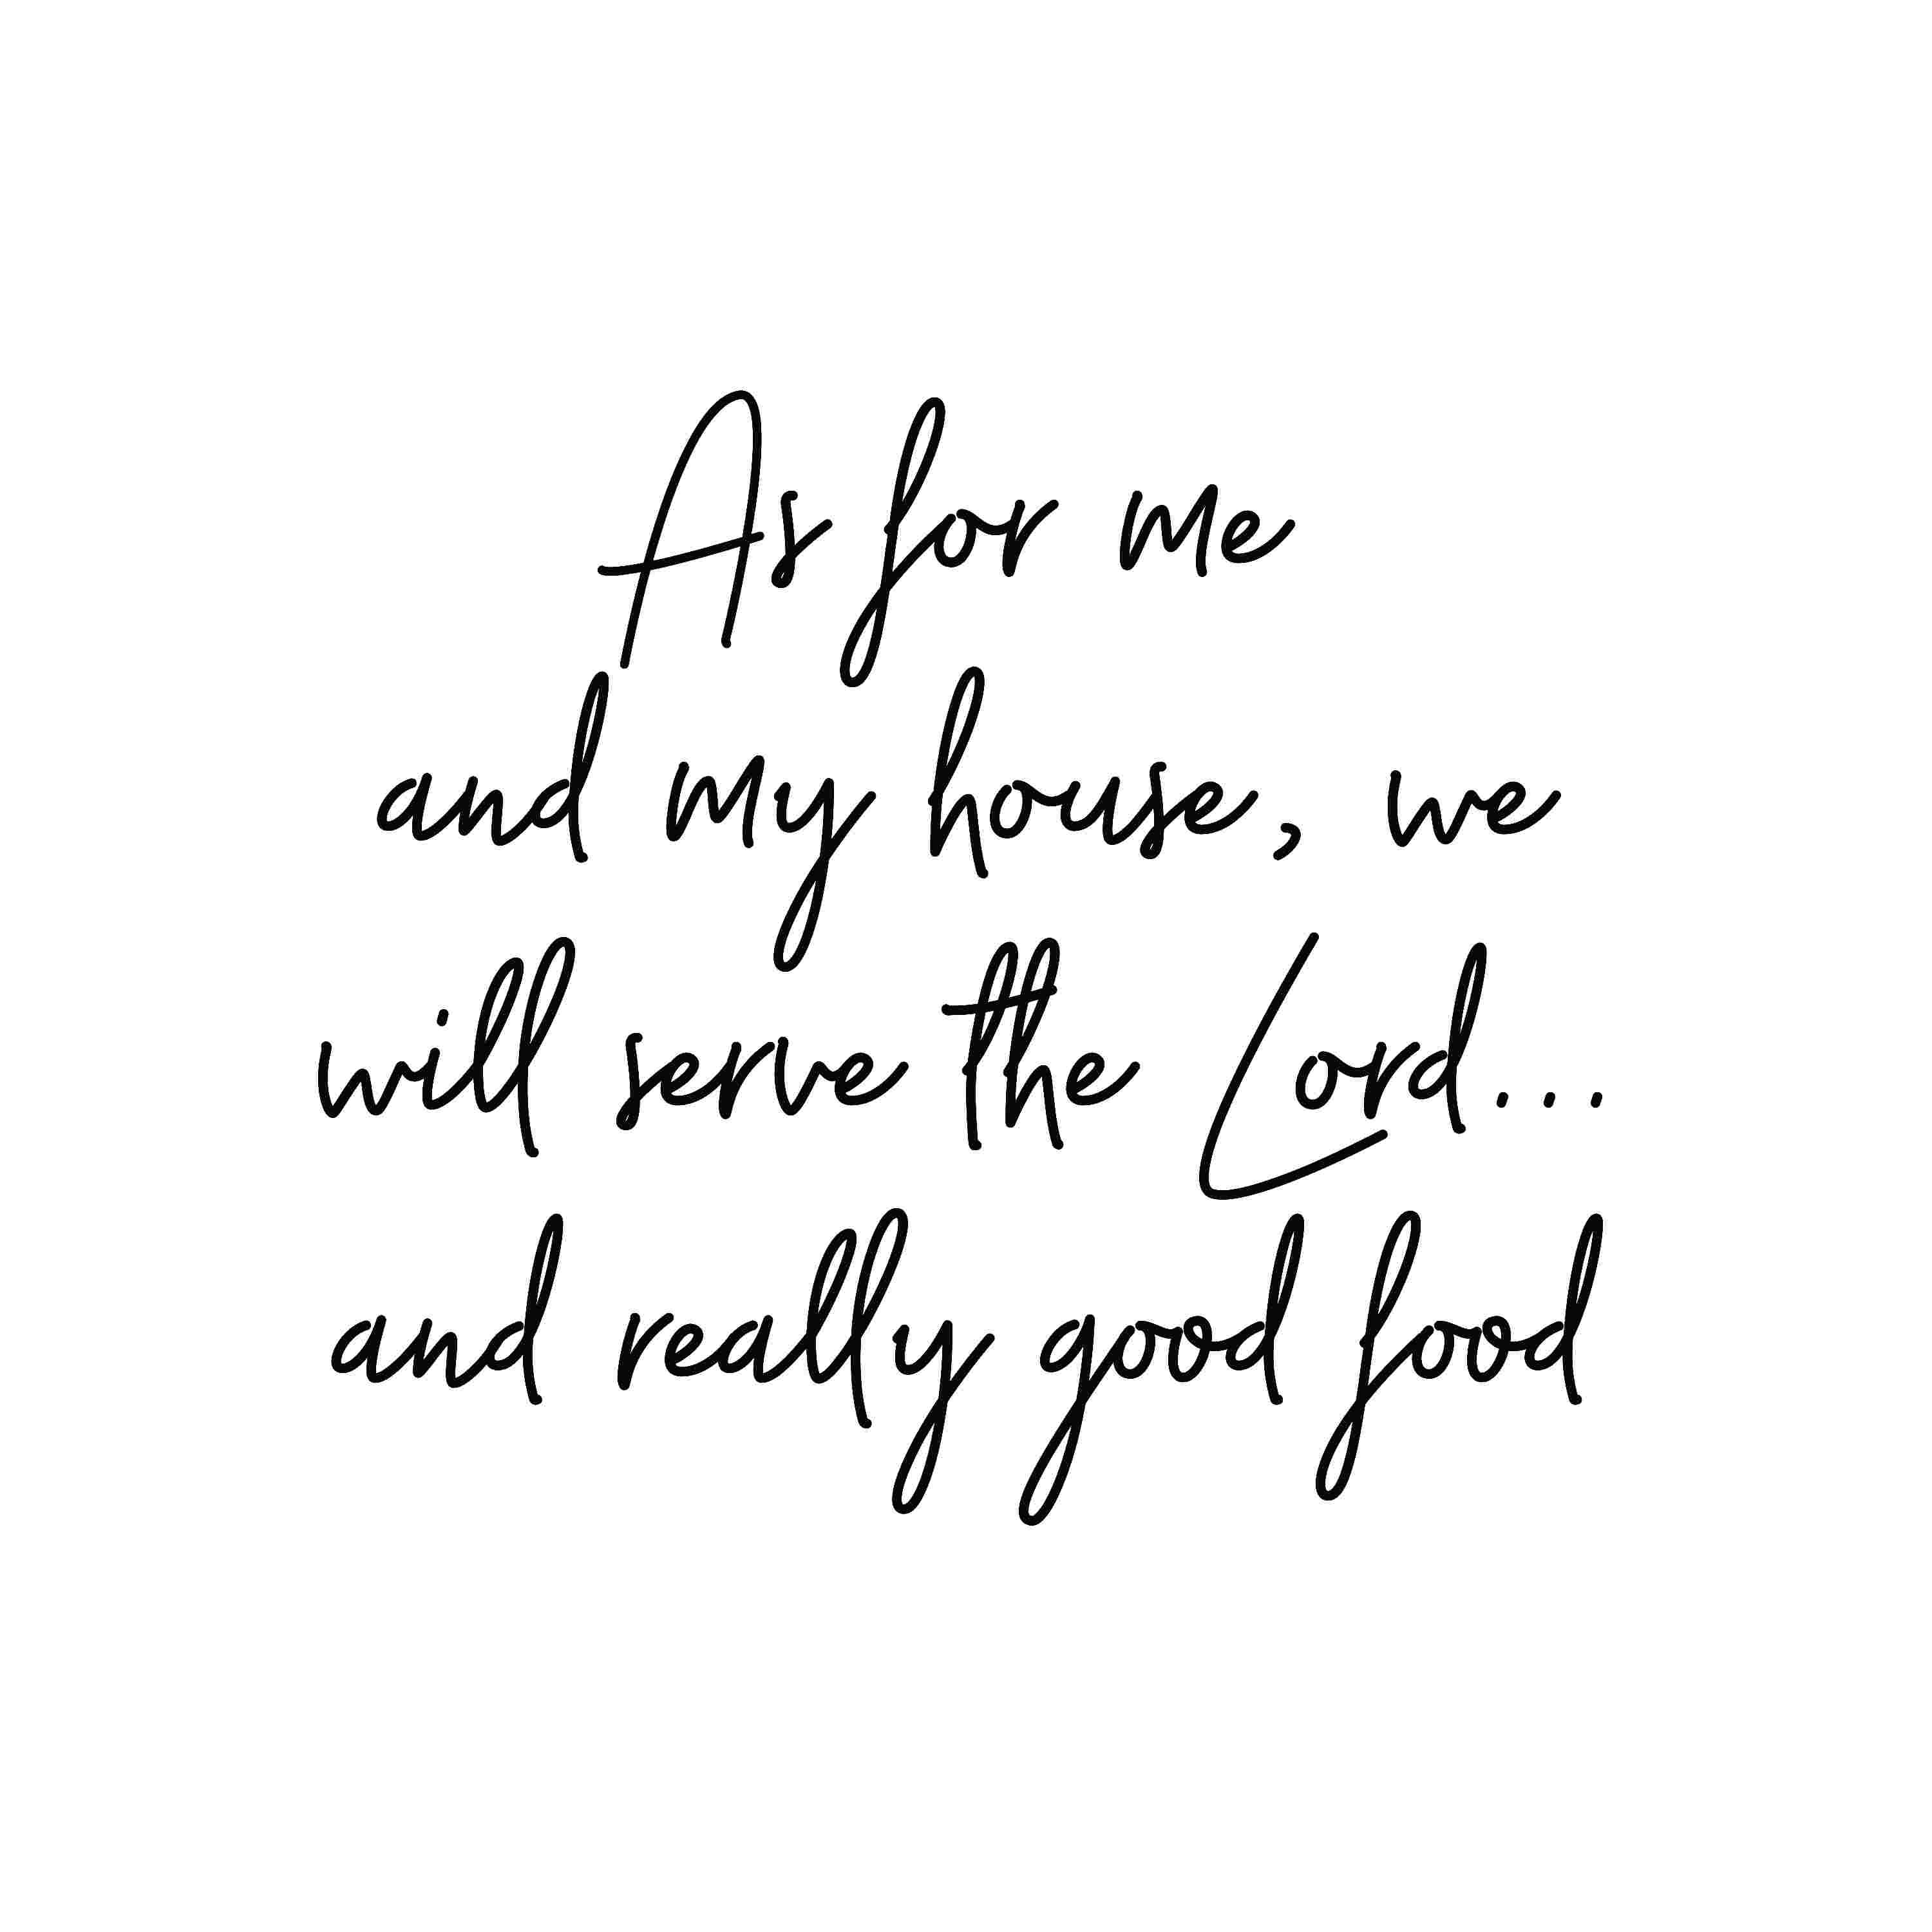 As for me
and my house, we
will serve the Lord...
and really good food